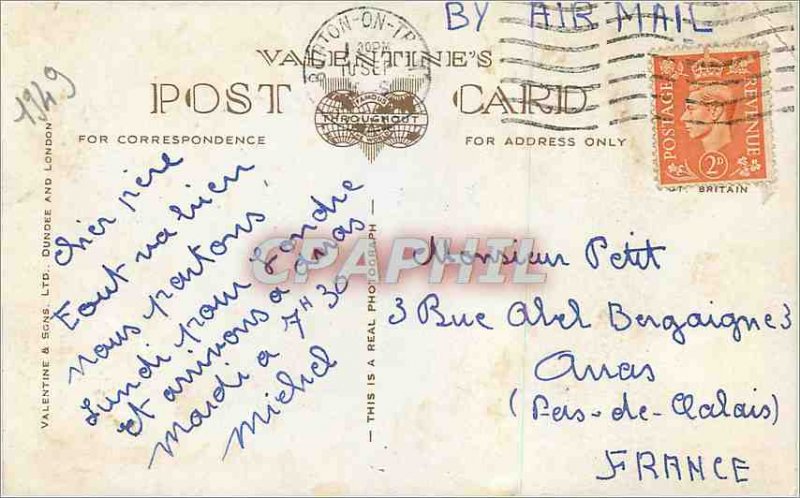 BY AIR MAIL
1949
BURTON-ON-TRENT
1 30PM
10 SEP
VALENTINE'S
POST CARD
THROUGHOUT
FOR CORRESPONDENCE
FOR ADDRESS ONLY
POSTAGE
REVENUE
2D
GT. BRITAIN
VALENTINE & SONS. LTD., DUNDEE AND LONDON
Cher père
Tout va bien
nous partons,
Lundi pour Londre
et arrivons à Arras
mardi à 7H 30
Michel
— THIS IS A REAL PHOTOGRAPH —
CPAPHIL
Monsieur Petit
3 Rue Abel Bergaigne 3
Arras
(Pas-de-Calais)
FRANCE